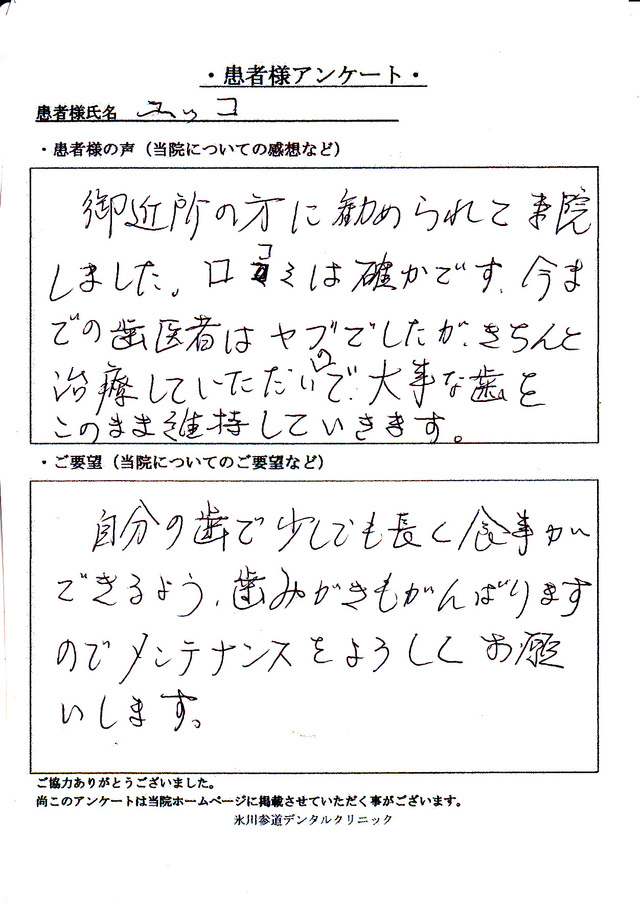 ・患者様アンケート・
患者様氏名 エッコ
・患者様の声（当院についての感想など）
御近所の方に勧められて来院
しました。口コミは確かです。今ま
での歯医者はヤブでしたが、きちんと
治療していただいので、大事な歯を
このまま維持していきます。
・ご要望（当院についてのご要望など）
自分の歯で少しでも長く食事が
できるよう、歯みがきもがんばります
のでメンテナンスをよろしくお願
いします。
ご協力ありがとうございました。
尚このアンケートは当院ホームページに掲載させていただく事がございます。
氷川参道デンタルクリニック